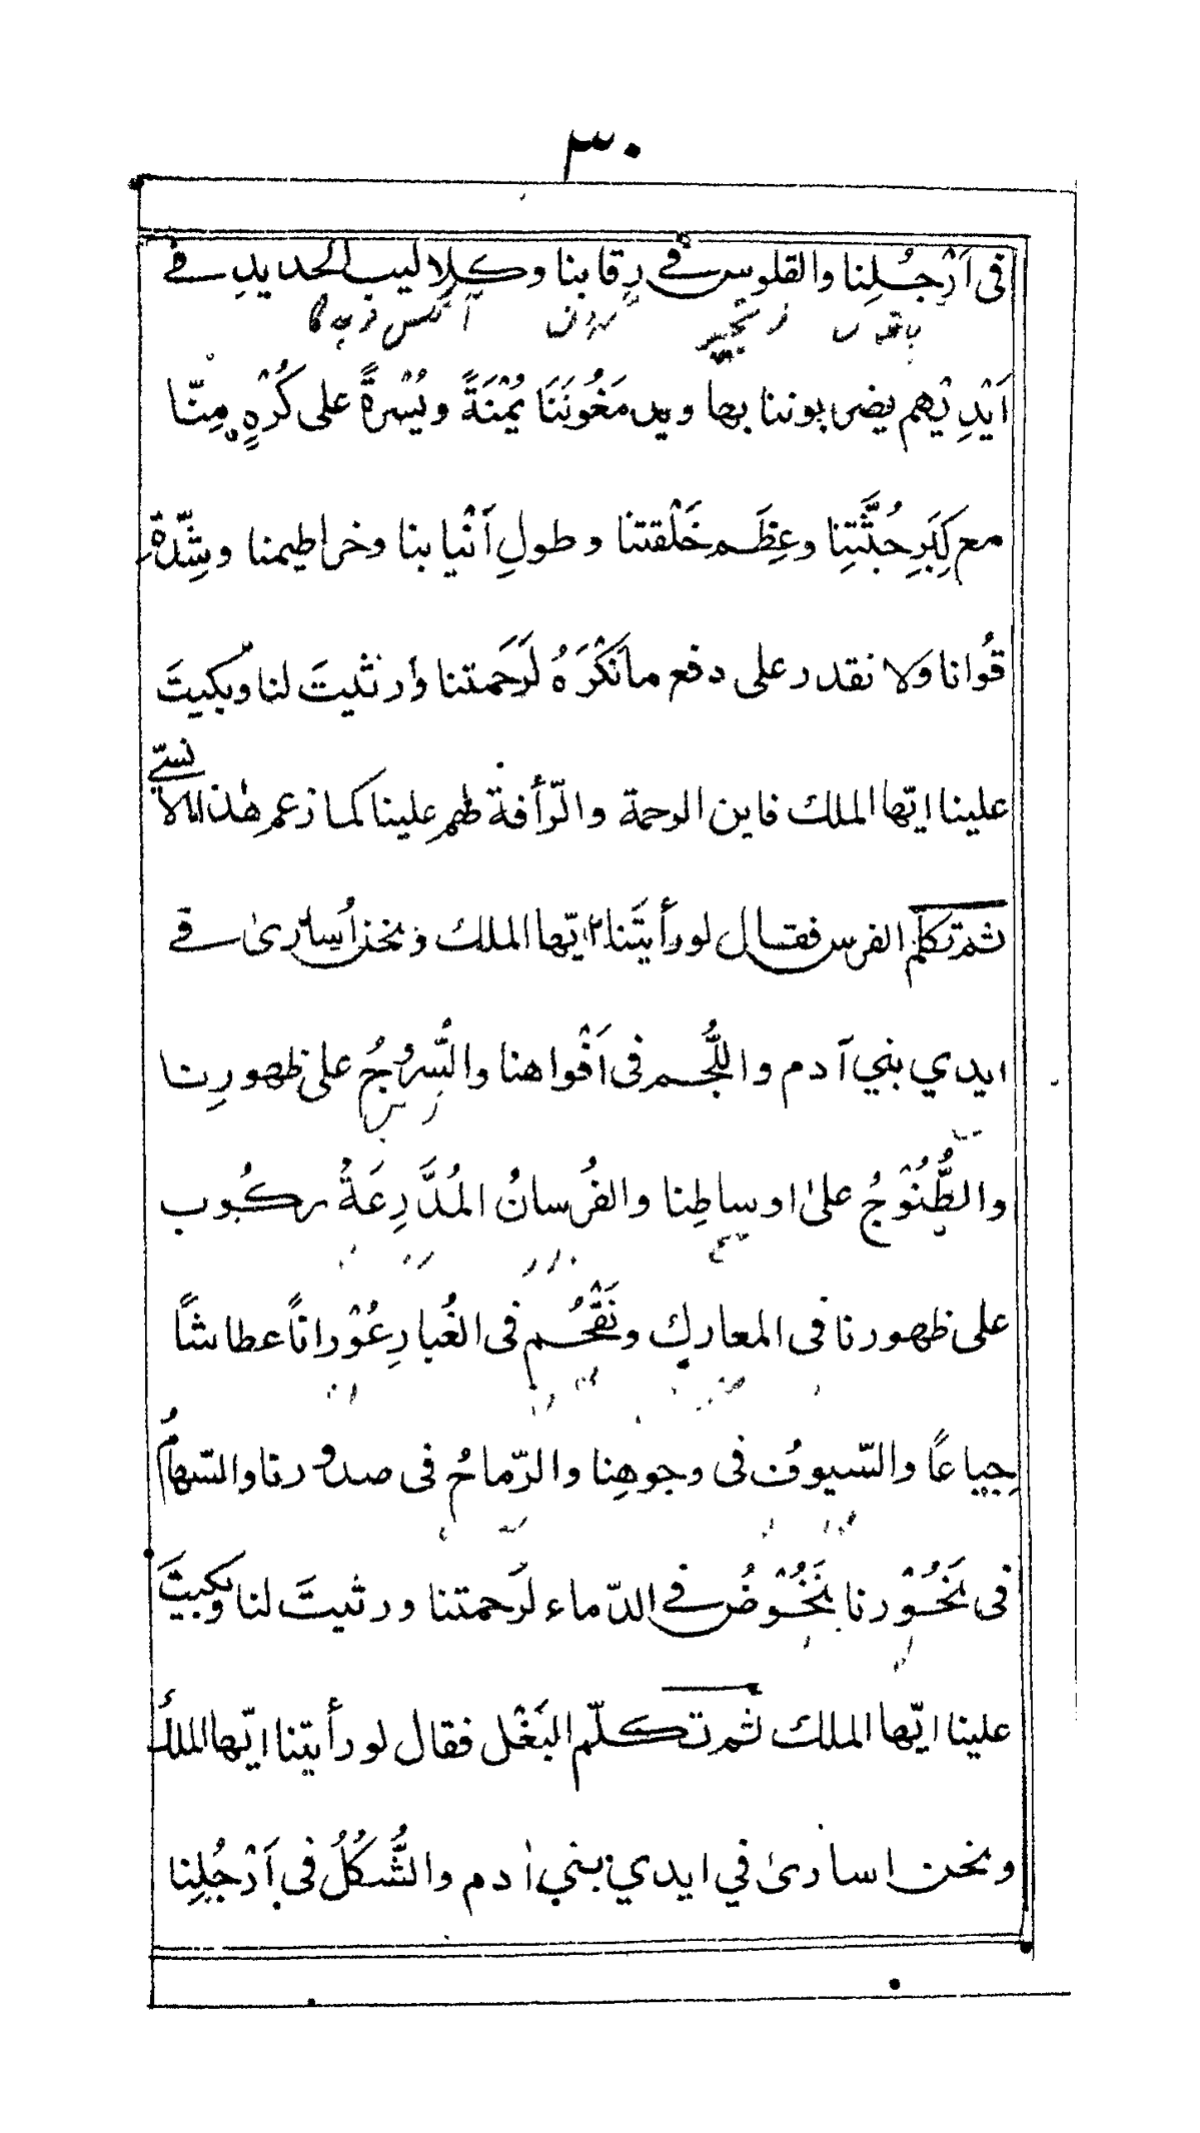 ٣٠
فى اَرْجُلِنا والقلوس فى رِقابنا وكلاليب الحديدِ فى
اَيْدِيْهم يضربوننا بها ويدمَغُونَنَا يُمْنَةً ويُسْرةً على كُرْهٍ مِنّا
مع كِبَرِ جُثَّتِنا وعِظَم خَلْقتنا وطولِ اَنْيابنا وخراطيمنا وشِدّة
قُوانا ولا نقدر على دفع ما نَكْرَهُ لَرَحَمتنا وَرثيتَ لنا وبكيتَ
علينا ايّها الملك فاين الرحمة والرّأفة لهم علينا كما زعم هٰذا الا
نسىّ
ثم تكلّم الفرس فقال لو رأيتَنا ايّها الملك ونحن اُسارىٰ فى
ايدي بني آدم واللُّجُم فى اَفْواهنا والسُّروُجُ على ظهورِنا
والطُّنُوْجُ علىٰ اوساطِنا والفُرسانُ المُدَّرِعَةُ ركُوب
على ظهورنا فى المعارك ونَقْحُم فى الغُبارِ عُوْراناً عطاشاً
جِياعًا والسّيوفُ فى وجوهِنا والرّماحُ فى صدورنا والسّهامُ
فى نَحُوْرنا نَخُوْضُ فى الدّماء لَرَحمتنا ورثيتَ لنا وبكيتَ
علينا ايّها الملك ثم تكلّم البَغْل فقال لو رأيتنا ايّها الملكُ
ونحن اسارىٰ في ايدي بني اٰدم والشُّكُلُ فى اَرْجُلِنا